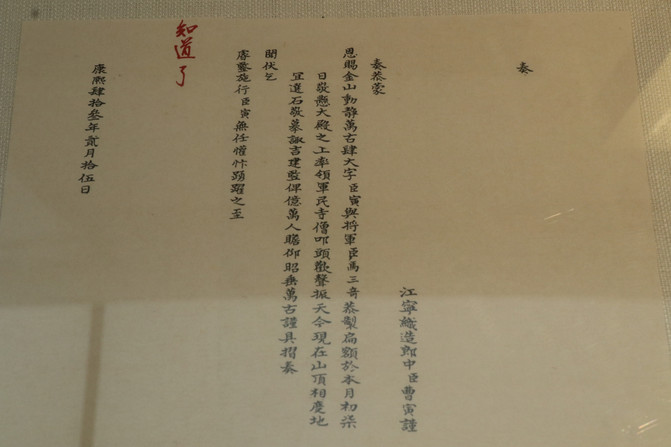 奏
江寧織造郎中臣曹寅謹
奏恭蒙
恩賜金山動靜萬古肆大字臣寅與將軍臣馬三奇恭製扁額於本月初柒
日敬懸大殿之上率領軍民寺僧叩頭歡聲振天今現在山頂相度地
宜選石敬摹諏吉建竪俾億萬人瞻仰昭垂萬古謹具摺奏
聞伏乞
睿鑒施行臣寅無任懽忭踴躍之至
康熙肆拾叁年貳月拾伍日
知道了